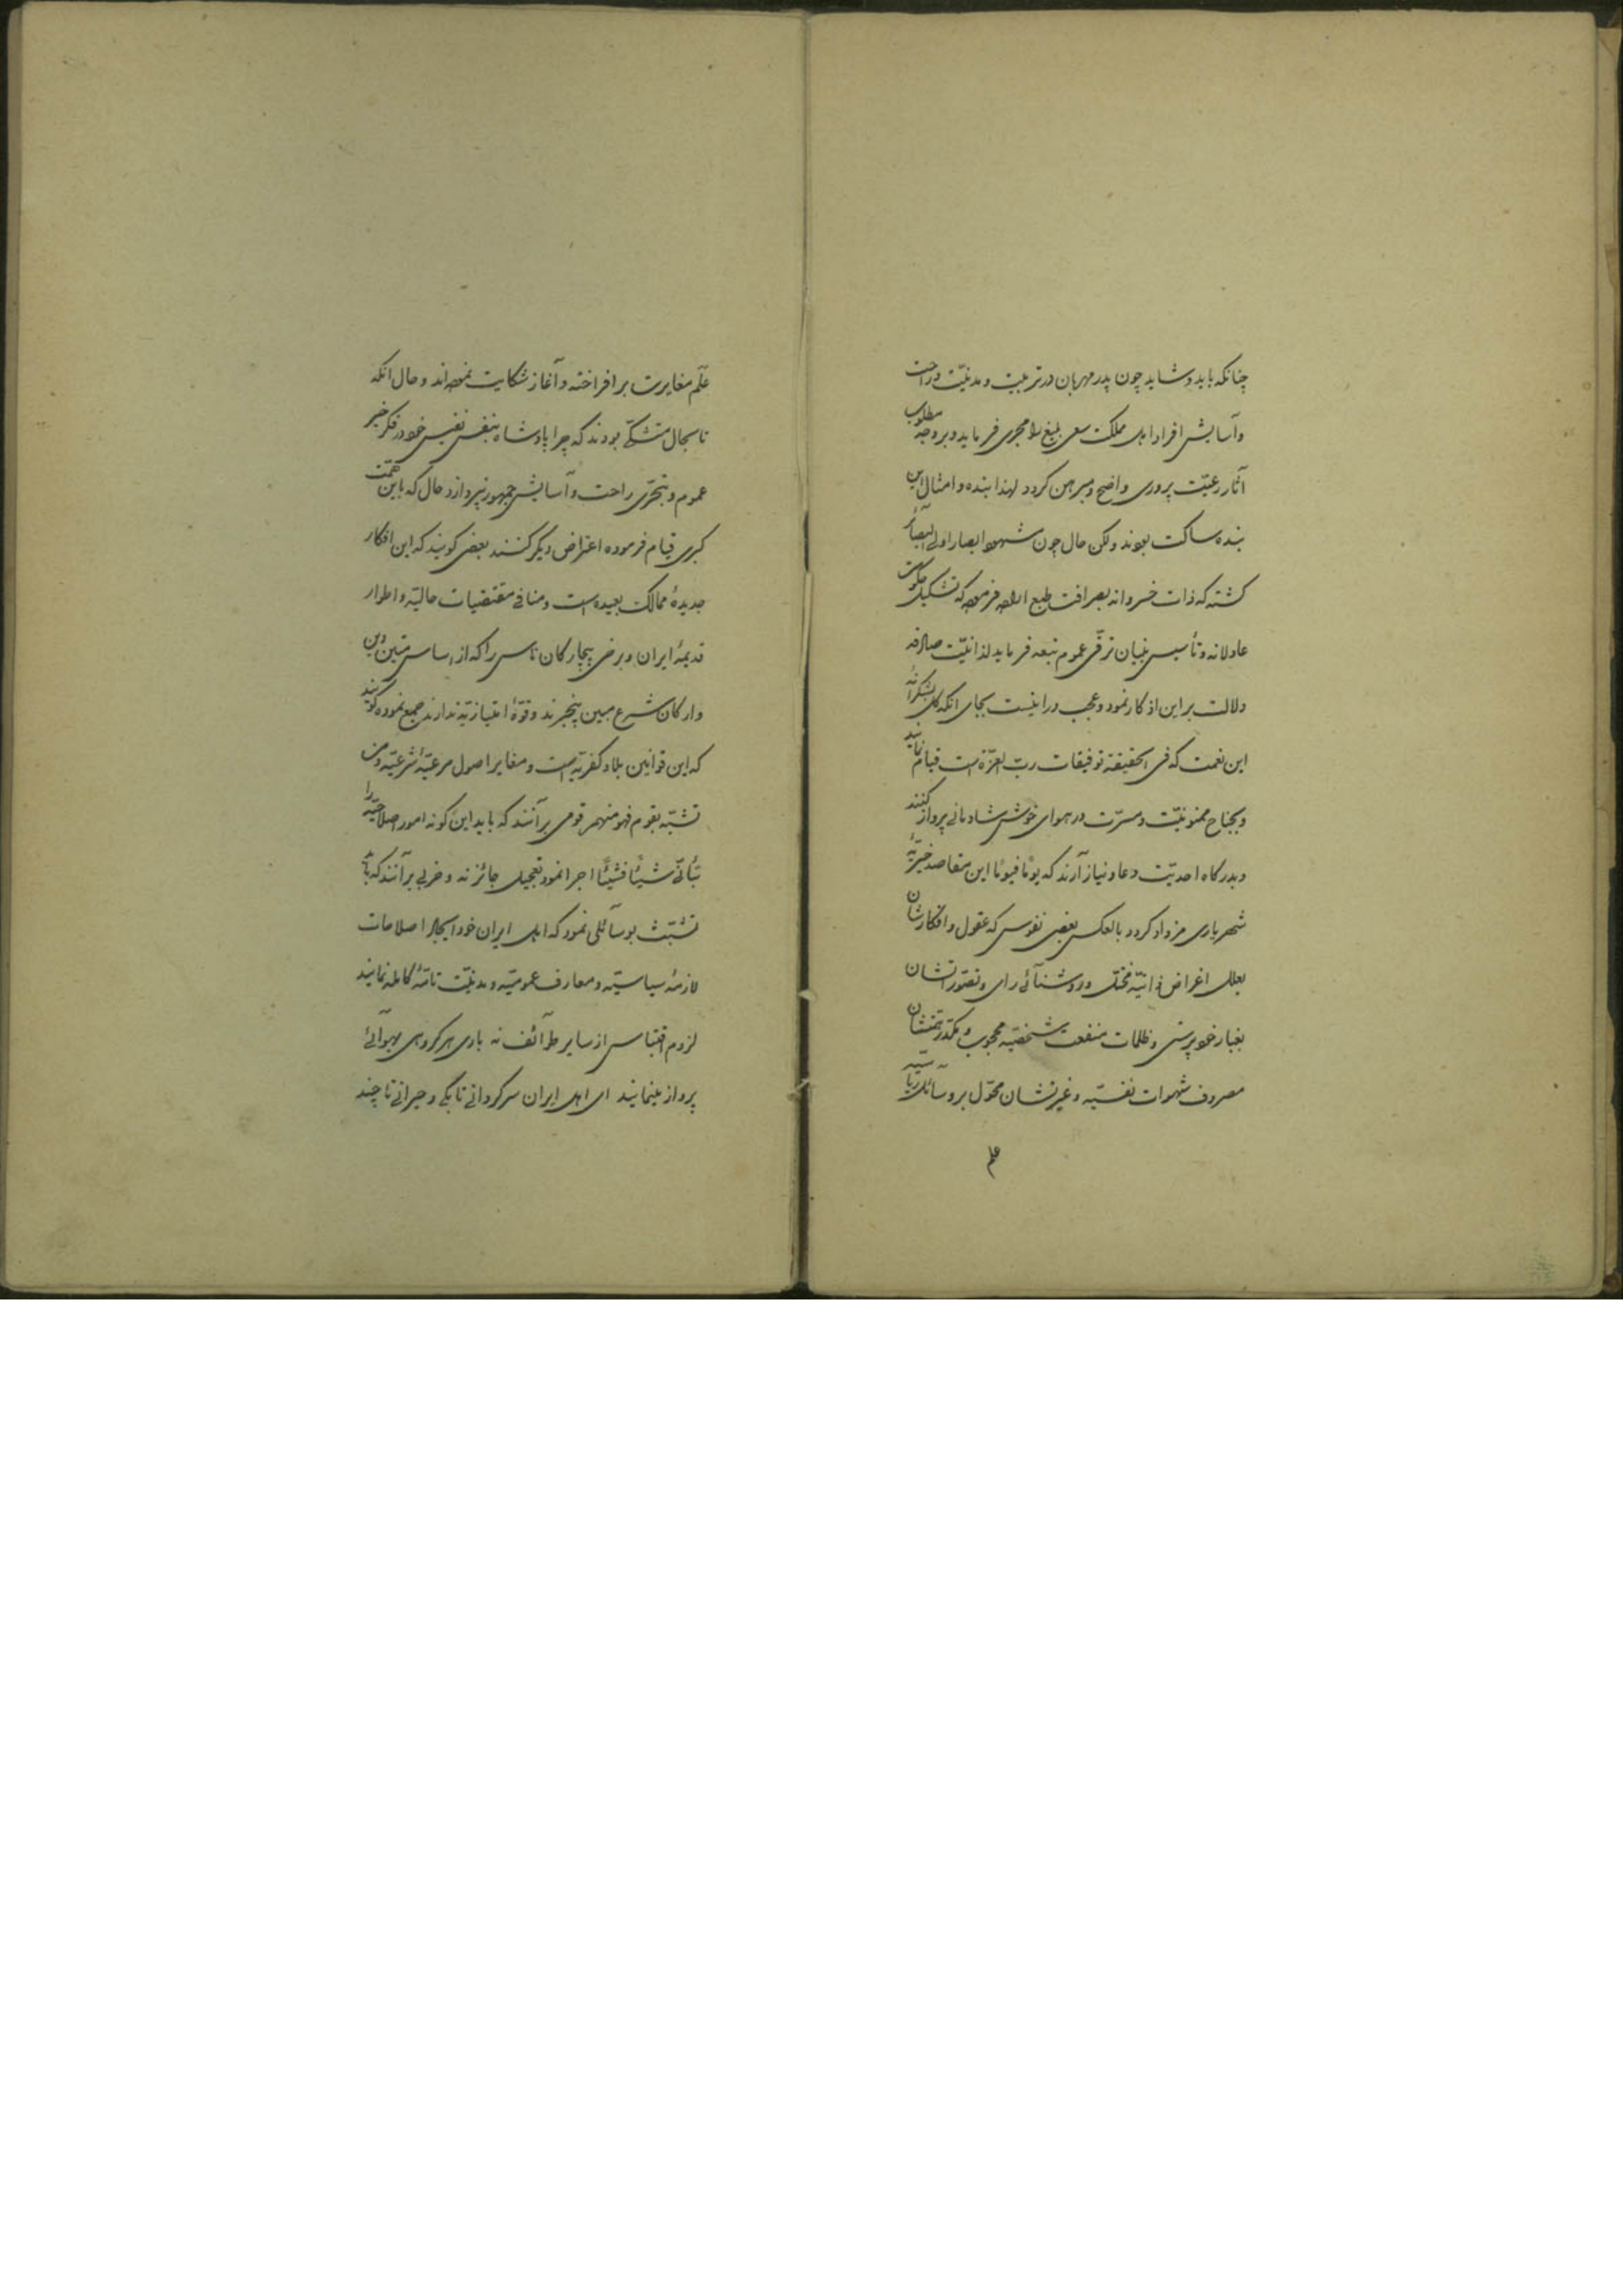 چنانکه باید و شاید چون پدر مهربان در تربیت و مدنیّت و راحت
و آسایش افراد اهل مملکت سعی بلیغ را مجری فرماید و بر وجه مطلوب
آثار رعیّت پروری واضح و مبرهن کردد لهذا بنده و امثال این
بنده ساکت بودند ولکن حال چون مشهود ابصار اولی البصآئر
کشته که ذات خسروانه بصرافت طبع اراده فرموده که تشکیل حکومت
عادلانه و تأسیس بنیان ترقّی عموم تبعه فرماید لذا نیّت صادقه
دلالت بر این اذکار نمود و عجب در اینست بجای انکه کل بشکرانهٔ
این نعمت که فی الحقیقه توفیقات ربّ العزّه است قیام نمایند
و بجناح ممنونیّت و مسرّت در هوای خوش شادمانی پرواز کنند
و بدرکاه احدیّت دعا و نیاز آرند که یومًا فیومًا این مقاصد خیریّهٔ
شهریاری مزداد کردد بالعکس بعضی نفوس که عقول و افکارشان
بعلل اغراض ذاتیّه مختل و روشنآئی رای و تصوّراتشان
بغبار خودپرستی و ظلمات منفعت شخصیّه محجوب و مکدّر همّتشان
مصروف شهوات نفسیّه و غیرتشان محوّل بر وسآئل ریاسیّه
علم
علَم مغایرت بر افراخته و آغاز شکایت نموده‌اند و حال انکه
تا بحال متشکّی بودند که چرا پادشاه بنفس نفیس خود در فکر خیر
عموم و بتحرّی راحت و آسایش جمهور نپردازد حال که باین همّت
کبری قیام فرموده اعتراض دیکر کنند بعضی کویند که این افکار
جدیدهٔ ممالک بعیده است و منافی مقتضیات حالیّه و اطوار
قدیمهٔ ایران و برخی بیچارکان ناس را که از اساس متین دین
و ارکان شرع مبین بیخبرند و قوّهٔ امتیازیّه ندارند جمع نموده کویند
که این قوانین بلاد کفریّه است و مغایر اصول مرعیّهٔ شرعیّه و من
تشبّه بقوم فهو منهم قومی بر آنند که باید این کونه امور اصلاحیّه را
بتأنّی شیئًا فشیئًا اجرا نمود تعجیل جائز نه و حزبی بر آنند که باید
تشبّث بوسآئلی نمود که اهل ایران خود ایجاد اصلاحات
لازمهٔ سیاسیّه و معارف عمومیّه و مدنیّت تامّهٔ کامله نمایند
لزوم اقتباس از سایر طوآئف نه باری هر کروهی بهوآئی
پرواز مینمایند ای اهل ایران سرکردانی تا بکی و حیرانی تا چند